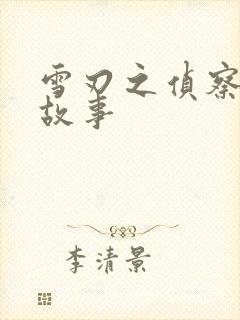 雪刃之偵察
故事
李清景